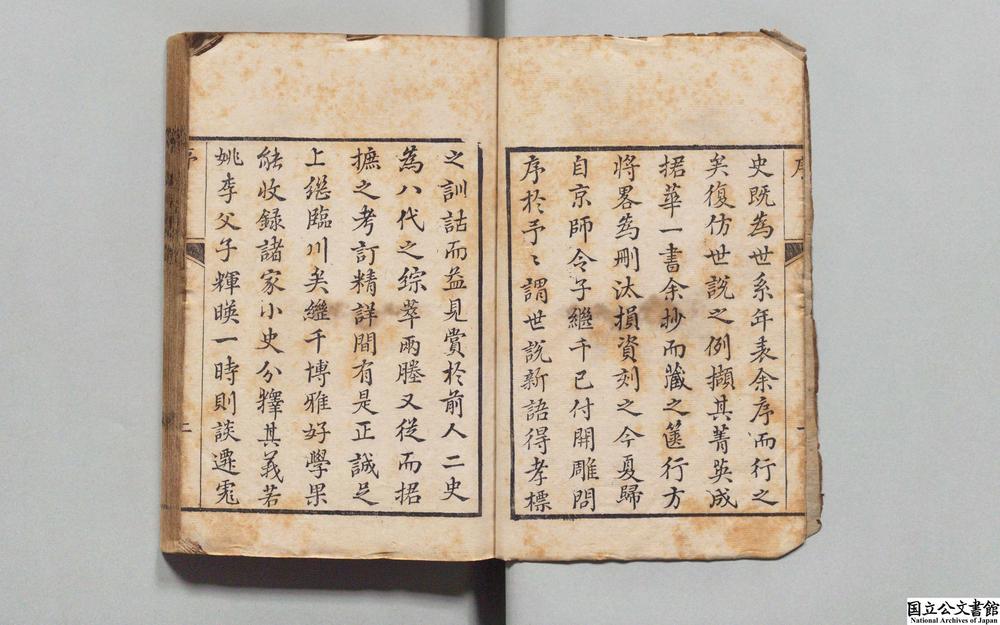 序
史既為世系年表余序而行之
矣復仿世說之例擷其菁英成
捃華一書余抄而藏之篋行方
將畧為刪汰損資刻之今夏歸
自京師令子繼千已付開雕問
序於予〻謂世說新語得孝標
一
之訓詁而益見賞於前人二史
為八代之綜萃兩塍又從而捃
摭之考訂精詳間有是正誠足
上繼臨川矣繼千博雅好學果
能收錄諸家小史分釋其義若
姚李父子輝暎一時則談遷彪
序
二
国立公文書館
National Archives of Japan